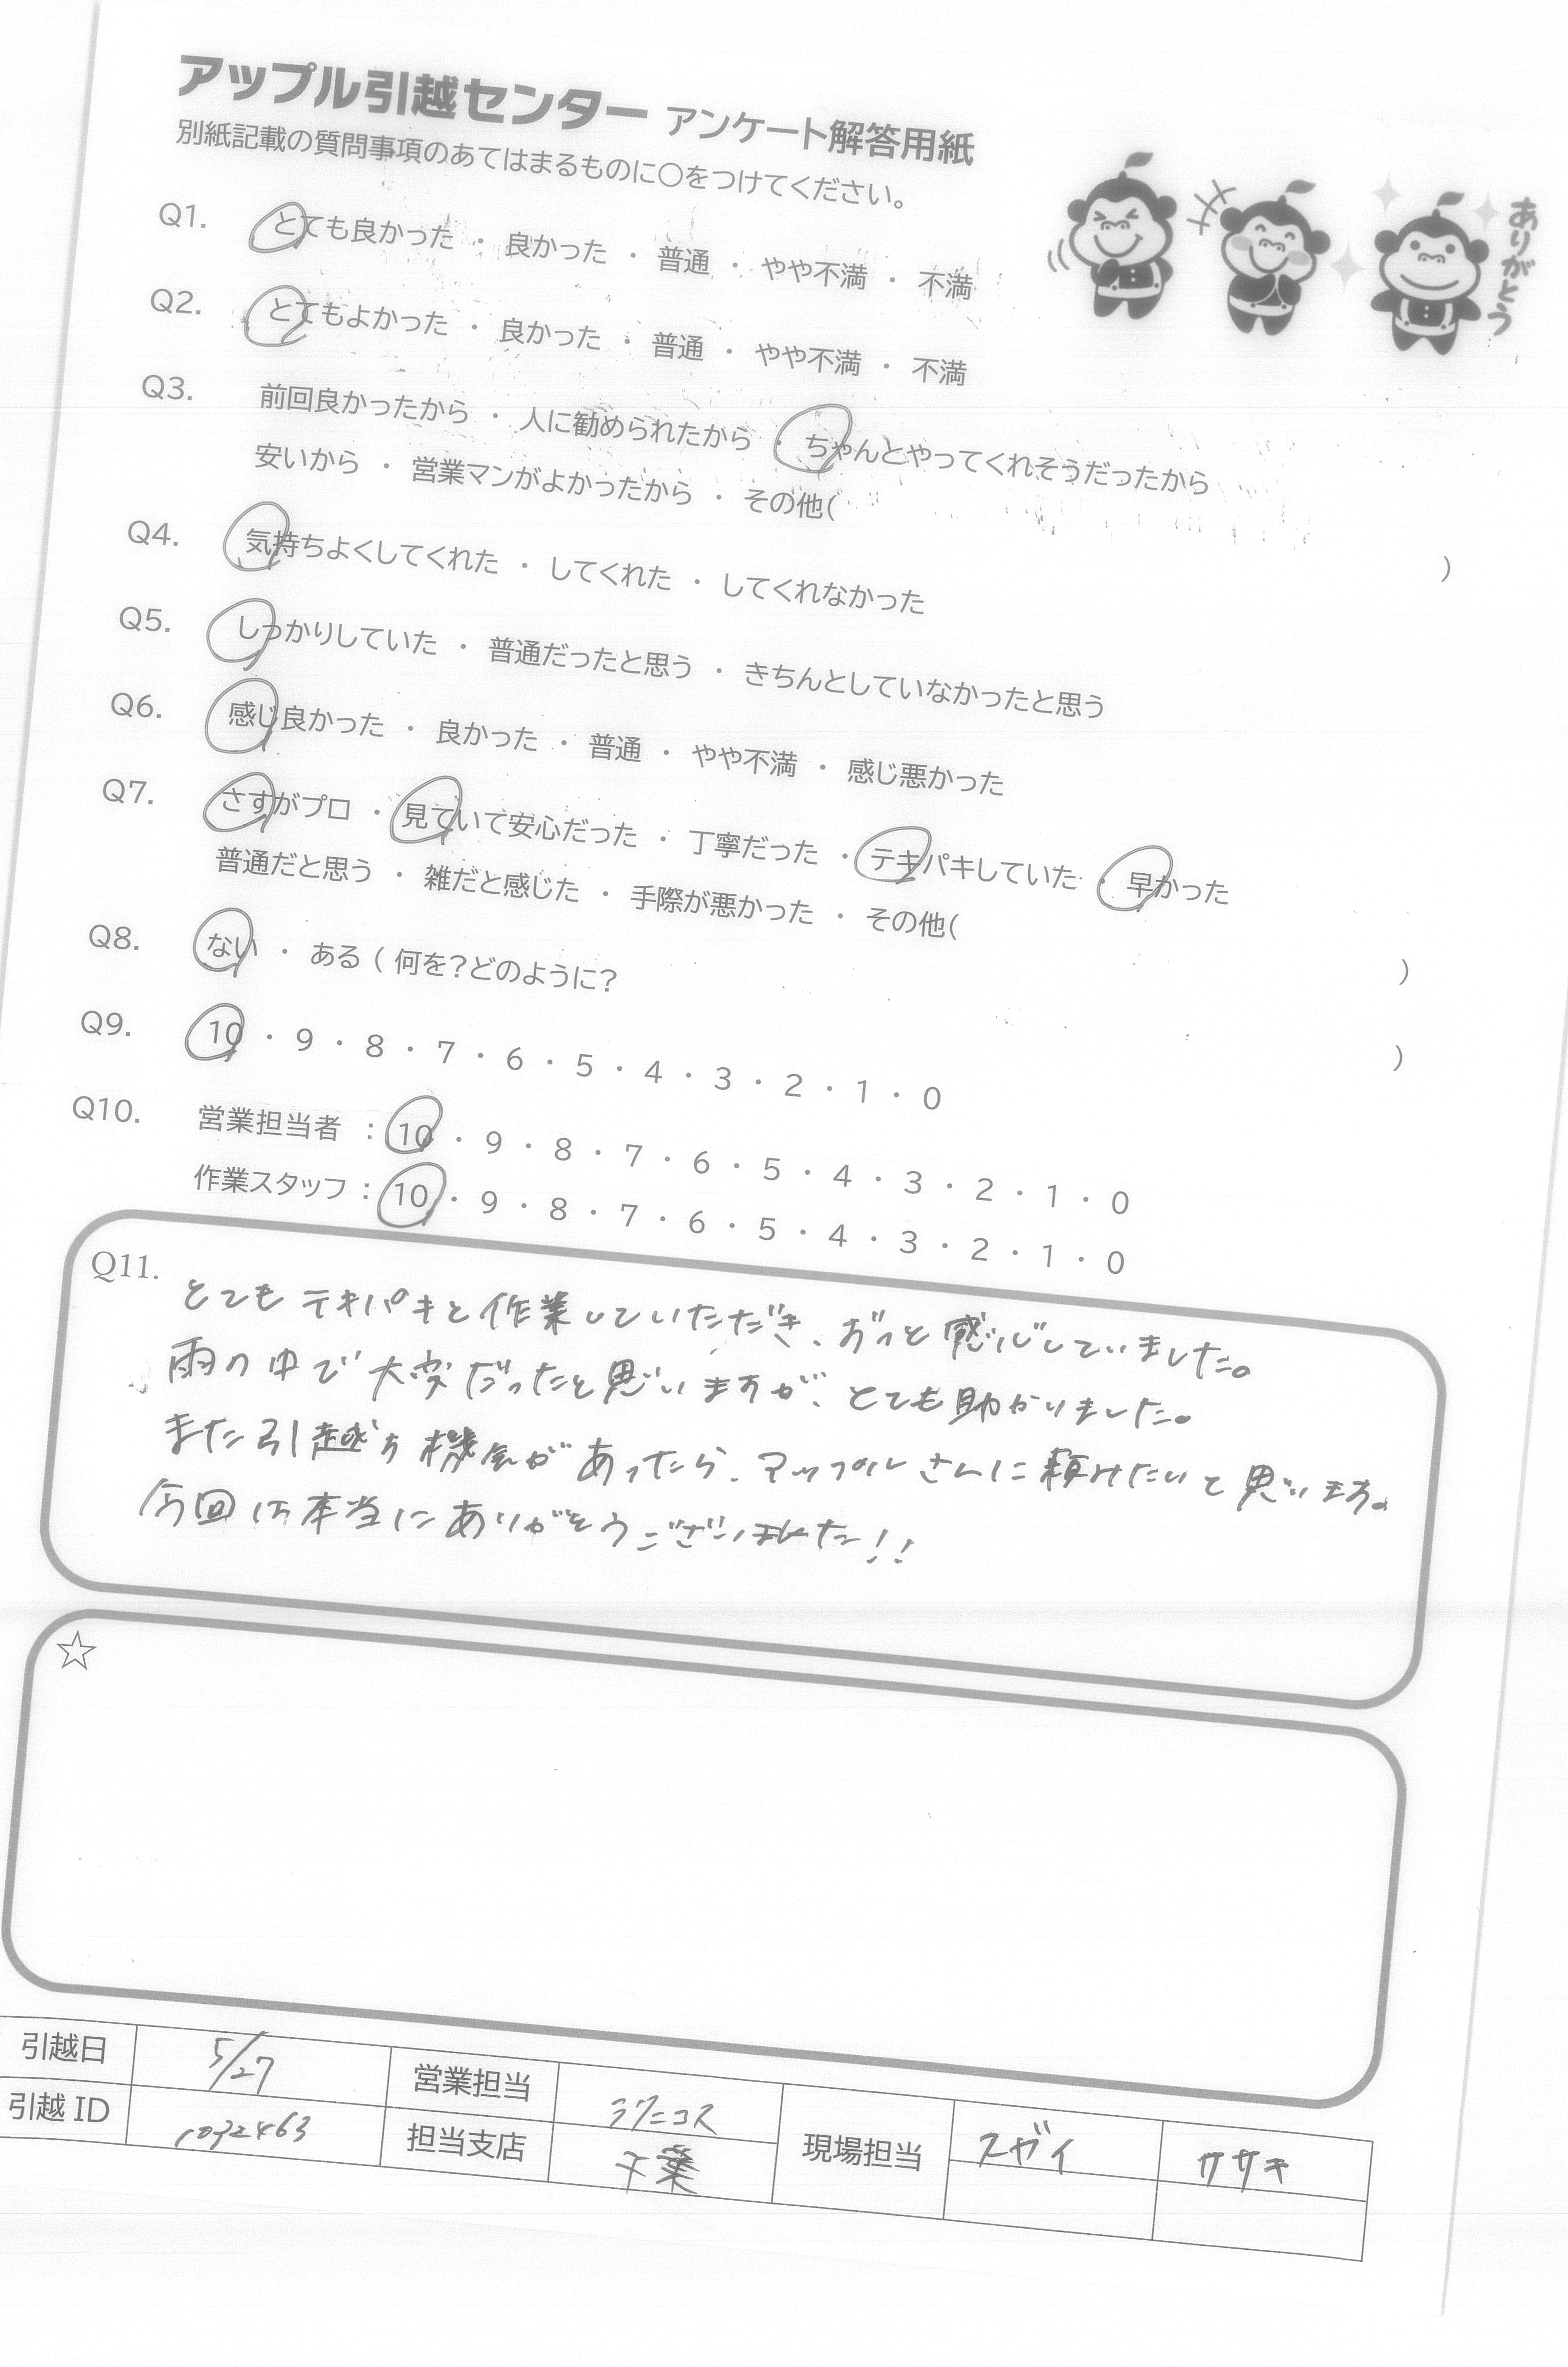 アップル引越センター アンケート解答用紙
別紙記載の質問事項のあてはまるものに〇をつけてください。
ありがとう
Q1. とても良かった ・ 良かった ・ 普通 ・ やや不満 ・ 不満
Q2. とてもよかった ・ 良かった ・ 普通 ・ やや不満 ・ 不満
Q3. 前回良かったから ・ 人に勧められたから ・ ちゃんとやってくれそうだったから
安いから ・ 営業マンがよかったから ・ その他( )
Q4. 気持ちよくしてくれた ・ してくれた ・ してくれなかった
Q5. しっかりしていた ・ 普通だったと思う ・ きちんとしていなかったと思う
Q6. 感じ良かった ・ 良かった ・ 普通 ・ やや不満 ・ 感じ悪かった
Q7. さすがプロ ・ 見ていて安心だった ・ 丁寧だった ・ テキパキしていた ・ 早かった
普通だと思う ・ 雑だと感じた ・ 手際が悪かった ・ その他( )
Q8. ない ・ ある ( 何を?どのように? )
Q9. 10 ・ 9 ・ 8 ・ 7 ・ 6 ・ 5 ・ 4 ・ 3 ・ 2 ・ 1 ・ 0
Q10. 営業担当者 : 10 ・ 9 ・ 8 ・ 7 ・ 6 ・ 5 ・ 4 ・ 3 ・ 2 ・ 1 ・ 0
作業スタッフ : 10 ・ 9 ・ 8 ・ 7 ・ 6 ・ 5 ・ 4 ・ 3 ・ 2 ・ 1 ・ 0
Q11. とてもテキパキと作業していただき、 感じしていました。
雨の中で大変だったと思いますが、とても助かりました。
また引越す機会があったら、アップルさんに頼みたいと思います。
今回は本当にありがとうございました!!
☆
引越日 5/27 営業担当
引越 ID 1032463 担当支店 千葉 現場担当 スガイ ササキ